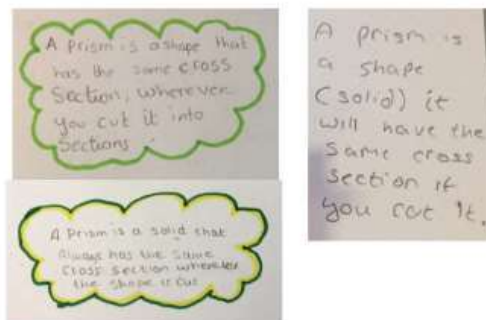 A prism is a shape that
has the same cross
section, wherever
you cut it into
sections.
A prism is a solid that
always has the same
cross section wherever
the shape is cut
A prism is
a shape
(solid) it
will have the
same cross
section if
you cut it.